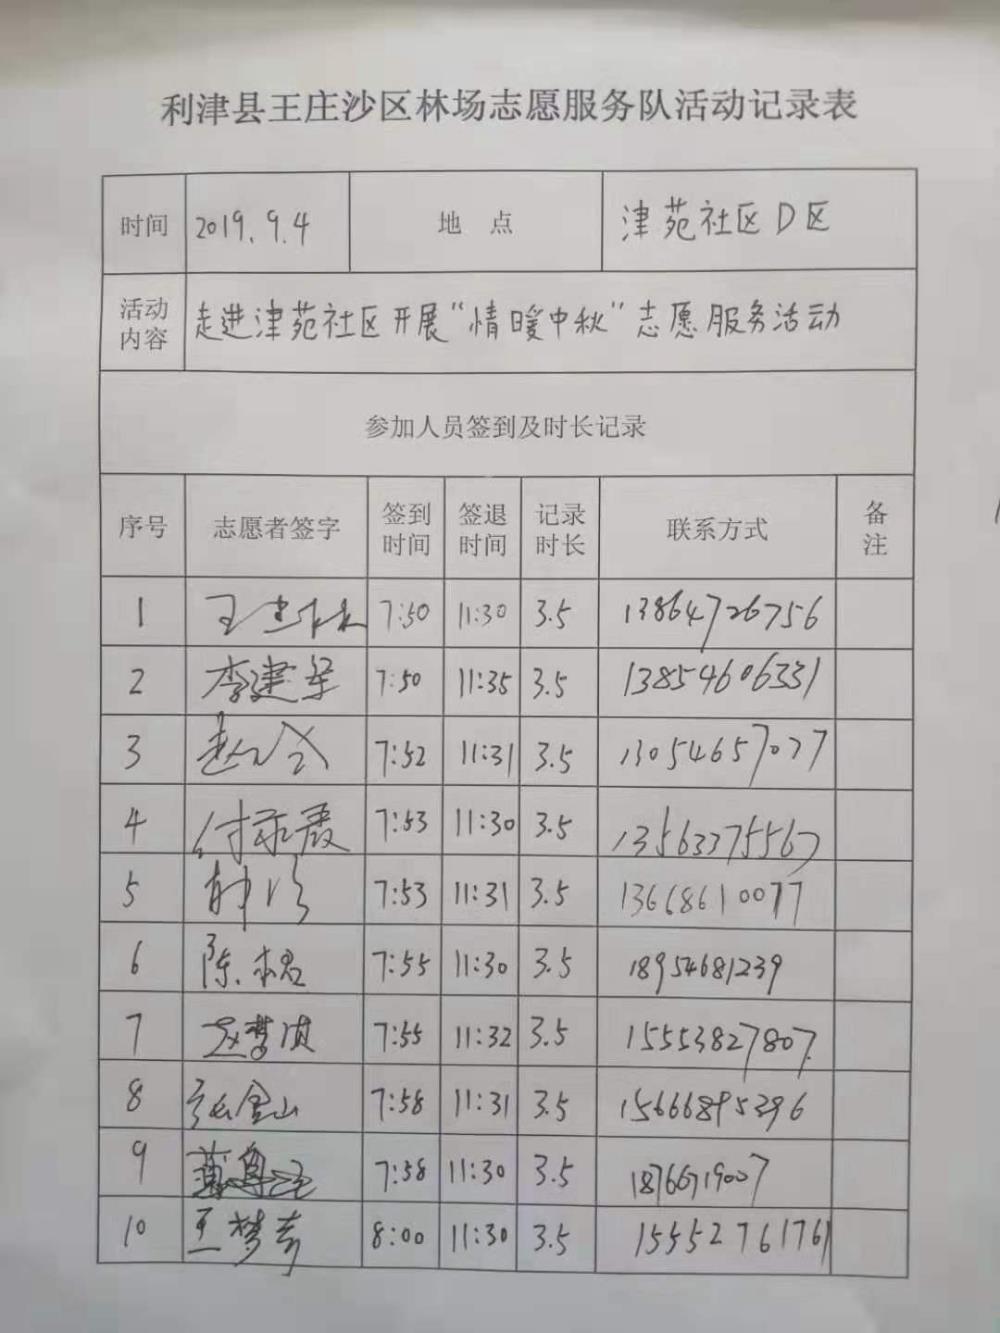 利津县王庄沙区林场志愿服务队活动记录表
时间 2019.9.4 地 点 津苑社区D区
活动内容 走进津苑社区开展“情暖中秋”志愿服务活动
参加人员签到及时长记录
序号 志愿者签字 签到时间 签退时间 记录时长 联系方式 备注
1 王 林 7:50 11:30 3.5 13864726756
2 李建军 7:50 11:35 3.5 13854606331
3 赵 7:52 11:31 3.5 13054657077
4 付 霞 7:53 11:30 3.5 13563375567
5 韩 7:53 11:31 3.5 13668610077
6 陈 7:55 11:30 3.5 18954681239
7 赵梦 7:55 11:32 3.5 15553827807
8 张金山 7:58 11:31 3.5 15666895396
9 7:58 11:30 3.5 18766719007
10 王梦 8:00 11:30 3.5 15552761761